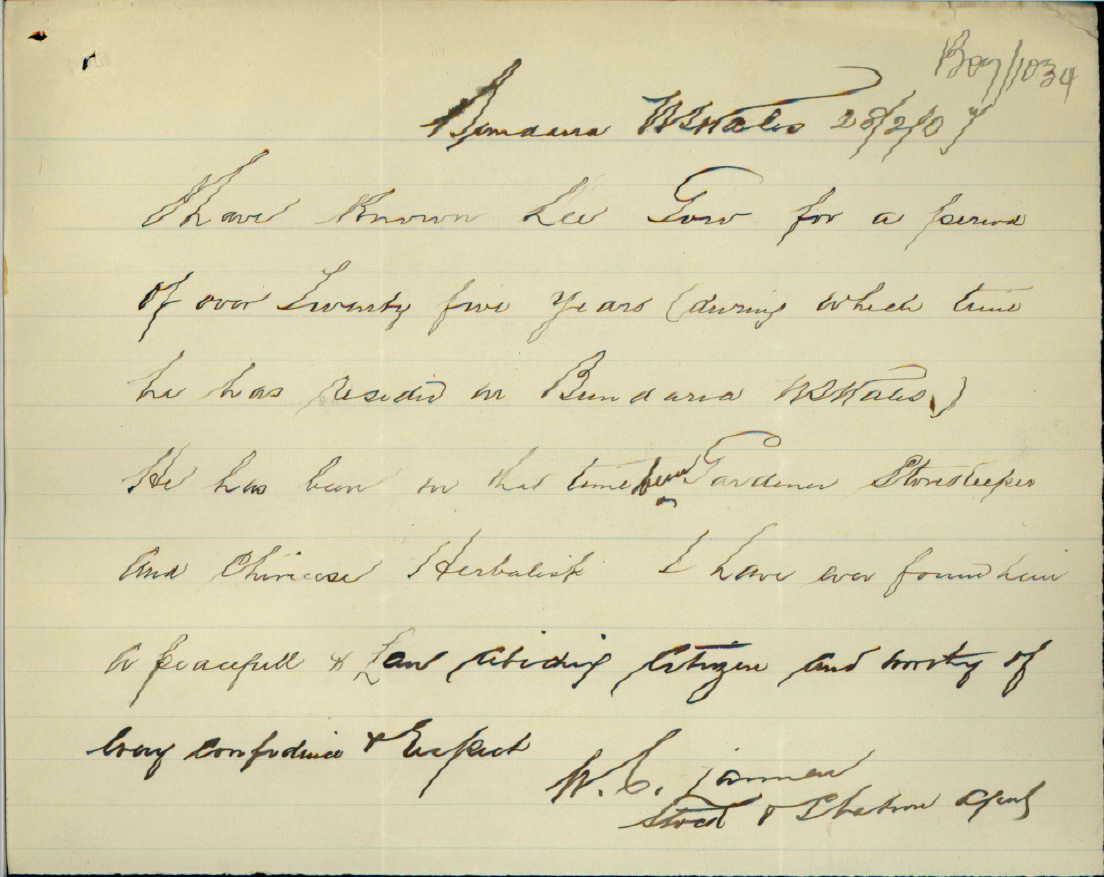 B07/1034
Bundarra NSWales 28/2/07
I have Known Lee Gow for a period
of over Twenty five Years (during which time
he has resided in Bundarra NSWales)
He has been in that time been Gardener Storekeeper
and Chinese Herbalist I have ever found him
a peacefull & Law abiding Citizen and worthy of
every confidence & Respect
W. C.
Stock & Station Agent